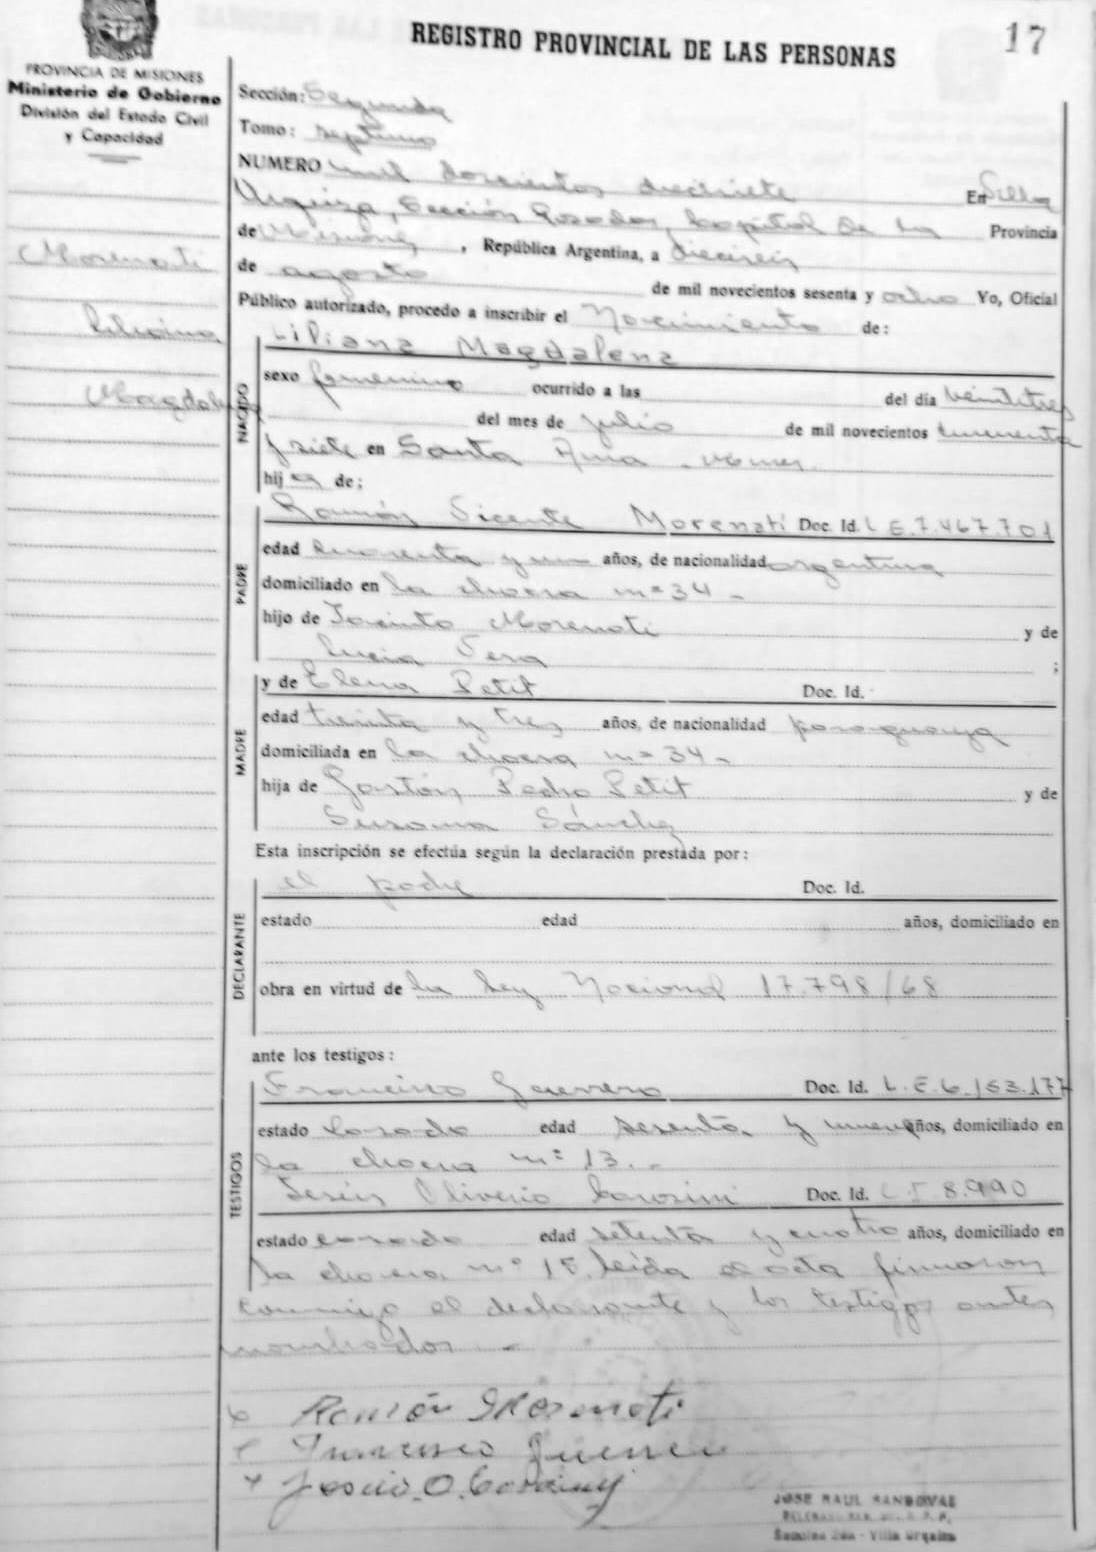 REGISTRO PROVINCIAL DE LAS PERSONAS
17
PROVINCIA DE MISIONES
Ministerio de Gobierno
División del Estado Civil
y Capacidad
Morenati
Liliana
Magdalena
Sección: Segunda
Tomo: septimo
NUMERO mil doscientos diecisiete En Villa
Urquiza, Sección Posadas, Capital de la Provincia
de Misiones, República Argentina, a dieciseis
de agosto de mil novecientos sesenta y ocho Yo, Oficial
Público autorizado, procedo a inscribir el Nacimiento de:
NACIDO
Liliana Magdalena
sexo femenino ocurrido a las del día veintitres
del mes de julio de mil novecientos cincuenta
y siete en Santa Ana
hija de;
PADRE
Ramón Vicente Morenati Doc. Id. L E. 7.467.701
edad cuarenta y un años, de nacionalidad argentina
domiciliado en la chacra nº 34 -
hijo de Jacinto Morenati y de
Lucia Vera ;
MADRE
y de Elena Petit Doc. Id.
edad treinta y tres años, de nacionalidad paraguaya
domiciliada en la chacra nº 34 -
hija de Gastón Pedro Petit y de
Susana Sánchez
Esta inscripción se efectúa según la declaración prestada por:
DECLARANTE
el padre Doc. Id.
estado edad años, domiciliado en
obra en virtud de la Ley Nacional 17.798/68
ante los testigos:
TESTIGOS
Francisco Guerrero Doc. Id. L. E. 6.153.177
estado casado edad sesenta y nueve años, domiciliado en
la chacra nº 13. -
Jesús Oliverio Doc. Id. 8.990
estado casado edad setenta y cuatro años, domiciliado en
la chacra nº 15. leida el acta firmaron
conmigo el declarante y los testigos antes
nombrados -
Ramón V Morenati
Francisco
Jesús. O.
JOSE RAUL SANDOVAL
Seccion 2da - Villa Urquiza